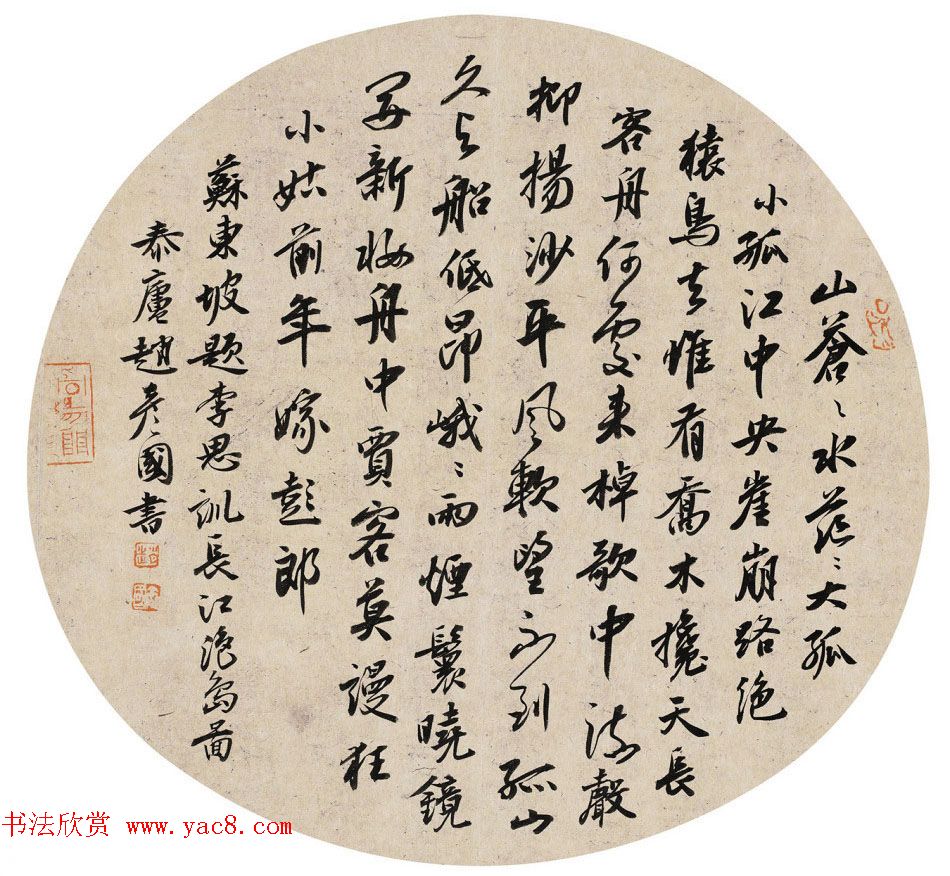 山蒼〻水茫〻大孤
小孤江中央崖崩路絶
猿鳥去惟有喬木攙天長
客舟何處来棹歌中流聲
抑揚沙平風軟望不到孤山
久与船低昂峨〻兩煙鬟曉鏡
開新妝舟中賈客莫謾狂
小姑前年嫁彭郎
蘇東坡題李思訓長江絶島圖
泰廬趙彦國書
书法欣赏 www.yac8.com